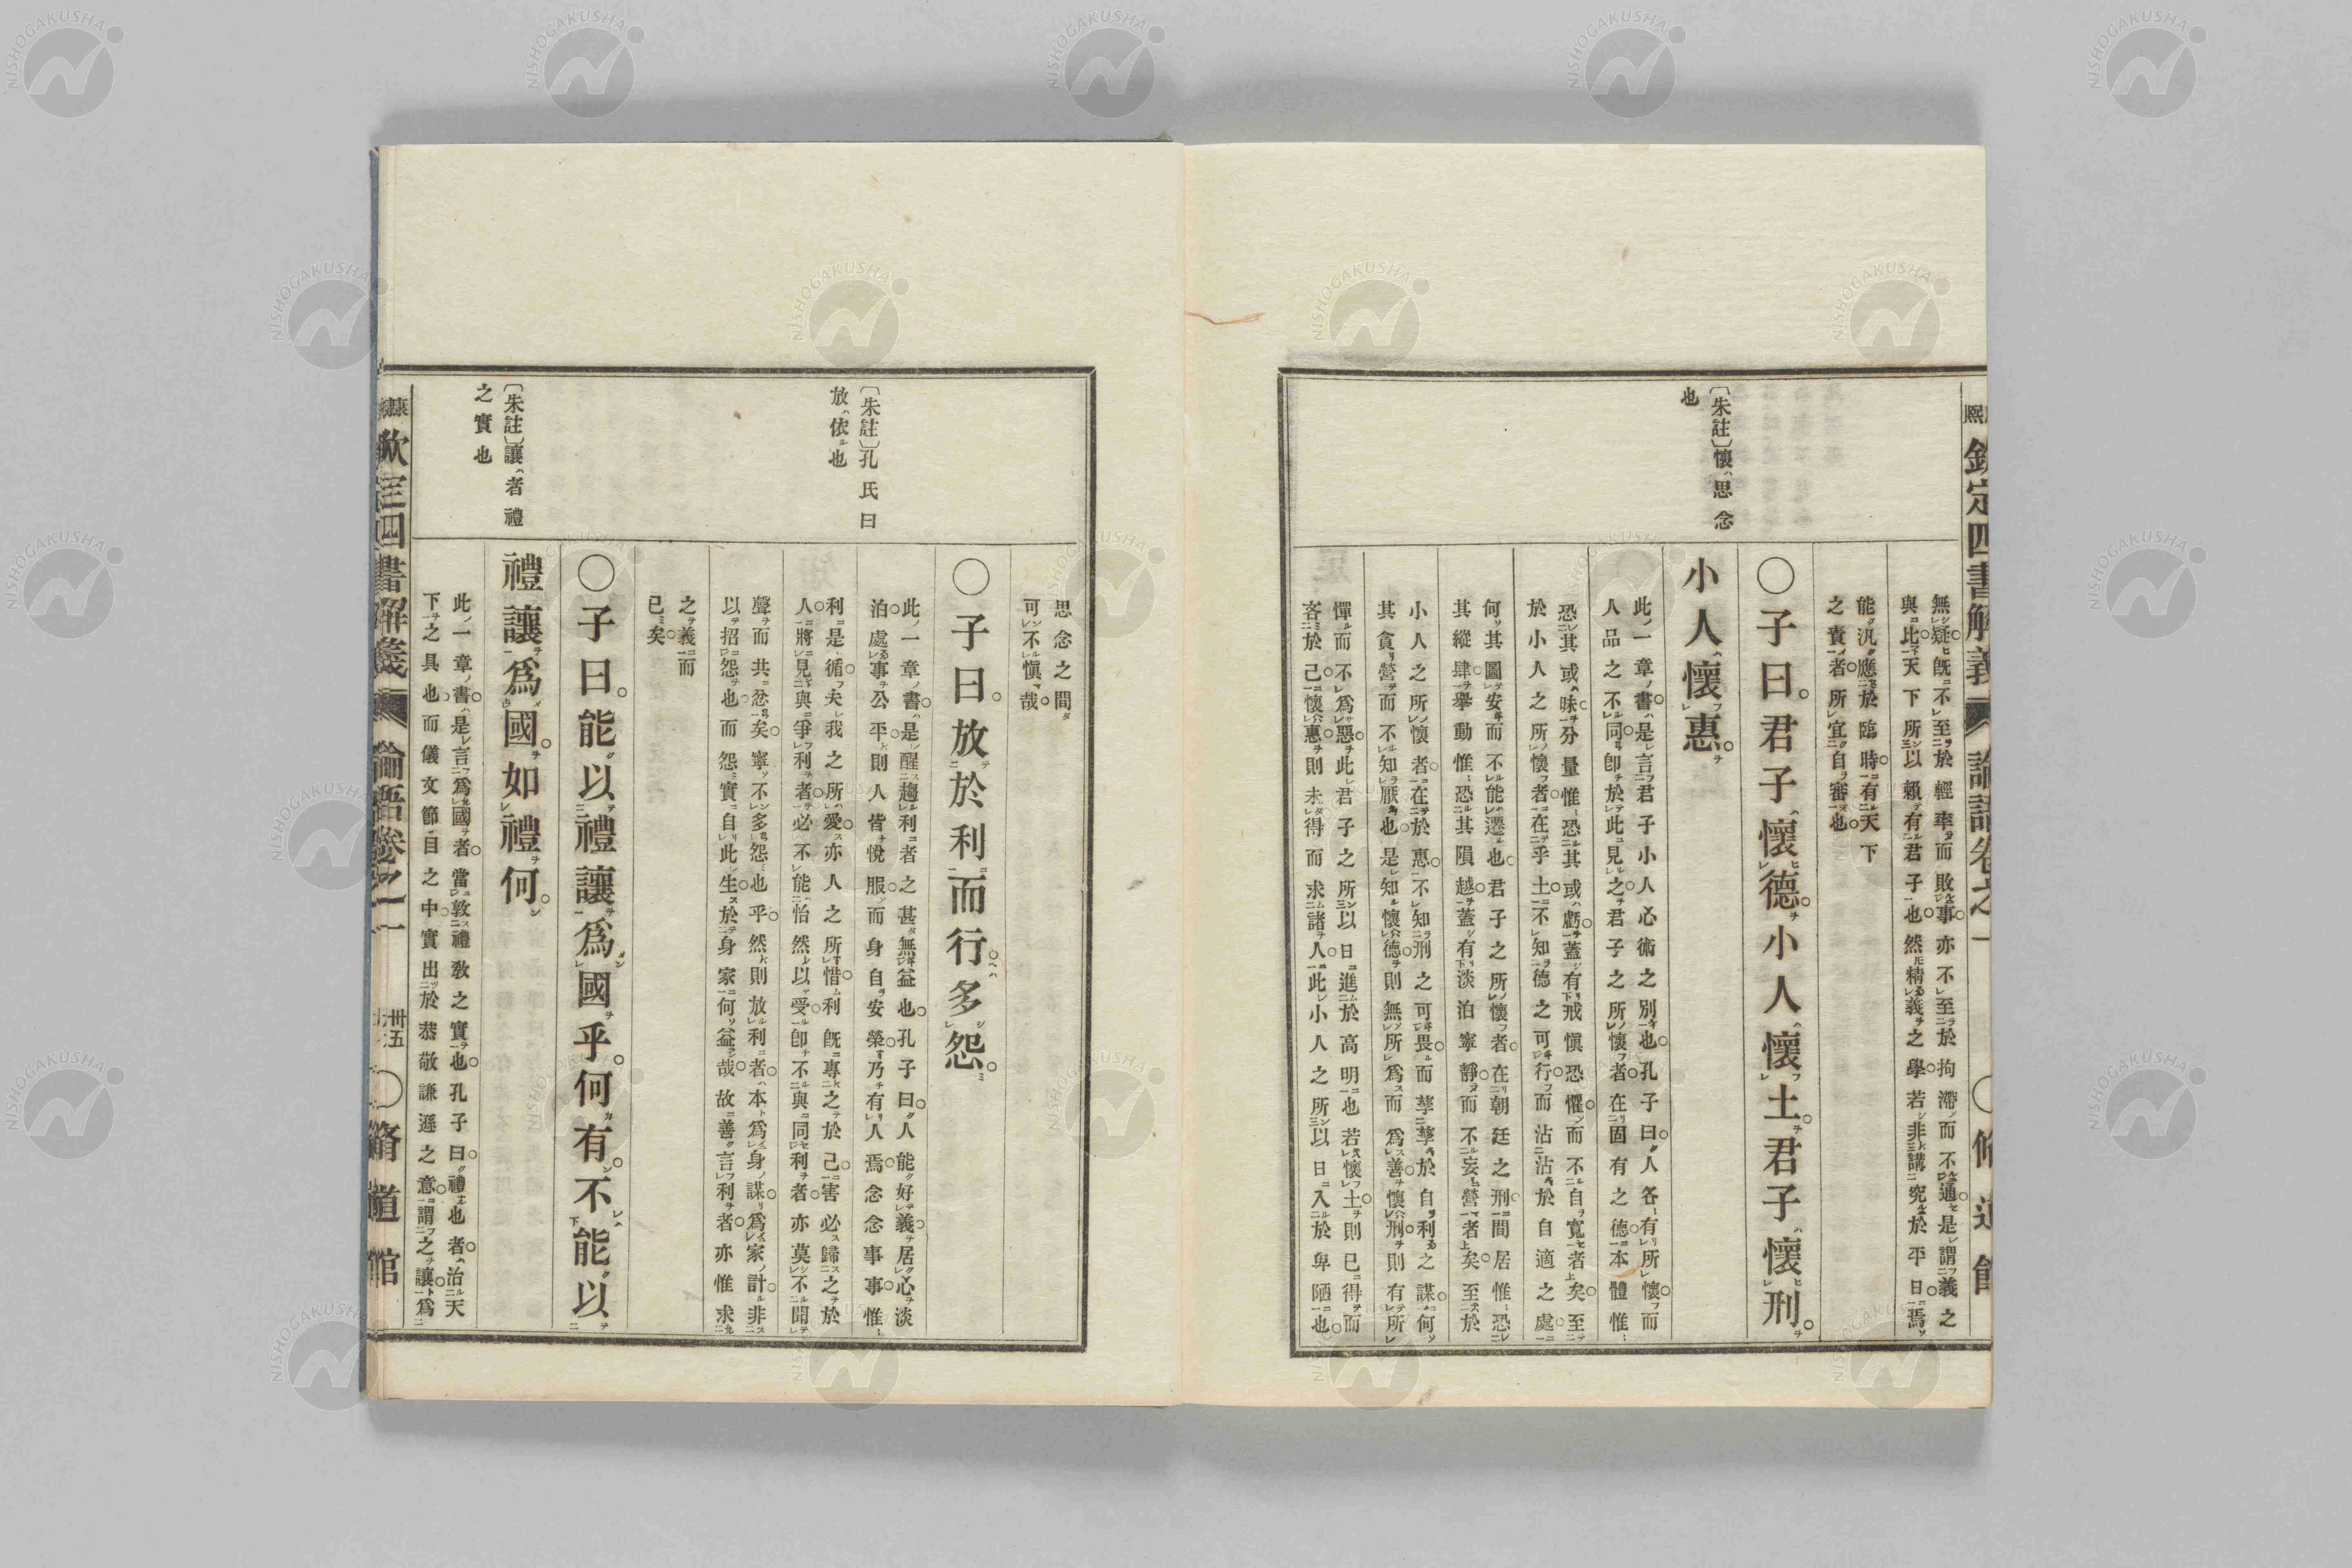 欽定四書解義 論語卷之一 〇脩道館
無疑。既不至於輕率而敗事。亦不至於拘滯而不通。是謂義之
與此。天下所以賴有君子也。然精義之學。若非講究於平日。焉
能汎應於臨時。有天下
之責者。所宜自審也。
〇子曰。君子懷德。小人懷土。君子懷刑。
小人懷惠。
〔朱註〕懷思念
也
此一章書。是言君子小人心術之別也。孔子曰。人各有所懷。而
人品之不同。卽於此見之。君子之所懷者。在固有之德。本體惟
恐其或昧。分量惟恐其或虧。蓋有戒愼恐懼。而不自寬者矣。至
於小人之所懷者。在乎土。不知德之可行。而沾沾於自適之處。
何其圖安而不能遷也。君子之所懷者。在朝廷之刑。間居惟恐
其縱肆。擧動惟恐其隕越。蓋有淡泊寧靜。而不妄營者矣。至於
小人之所懷者。在於惠。不知刑之可畏。而孳孳於自利之謀。何
其貪營而不知厭也。是知懷德。則無所爲而爲善。懷刑。則有所
憚而不爲惡。此君子之所以日進於高明也。若懷土。則已得而
吝於己。懷惠。則未得而求諸人。此小人之所以日入於卑陋也。
思念之間
可不愼哉。
〇子曰。放於利而行。多怨。
〔朱註〕孔氏曰
放依也
此一章書。是醒趨利者之甚無益也。孔子曰。人能好義。居心淡
泊。處事公平。則人皆悅服。而身自安榮。乃有人焉。念念事事。惟
利是循。夫我之所愛。亦人之所惜。利既專之於己。害必歸之於
人。將見與爭利者。必不能怡然以受。卽不與同利者。亦莫不聞
聲而共忿矣。寧不多怨也乎。然則放利者。本爲身謀。爲家計。非
以招怨也。而怨實自此生。於身家何益哉。故善言利者。亦惟求
之義而
已矣。
〇子曰。能以禮讓爲國乎。何有。不能以
禮讓爲國。如禮何。
〔朱註〕讓者禮
之實也
此一章書。是言爲國者。當敦禮敎之實也。孔子曰。禮也者。治天
下之具也。而儀文節目之中。實出於恭敬謙遜之意。謂之讓。爲
欽定四書解義 論語卷之一 卅五 〇脩道館